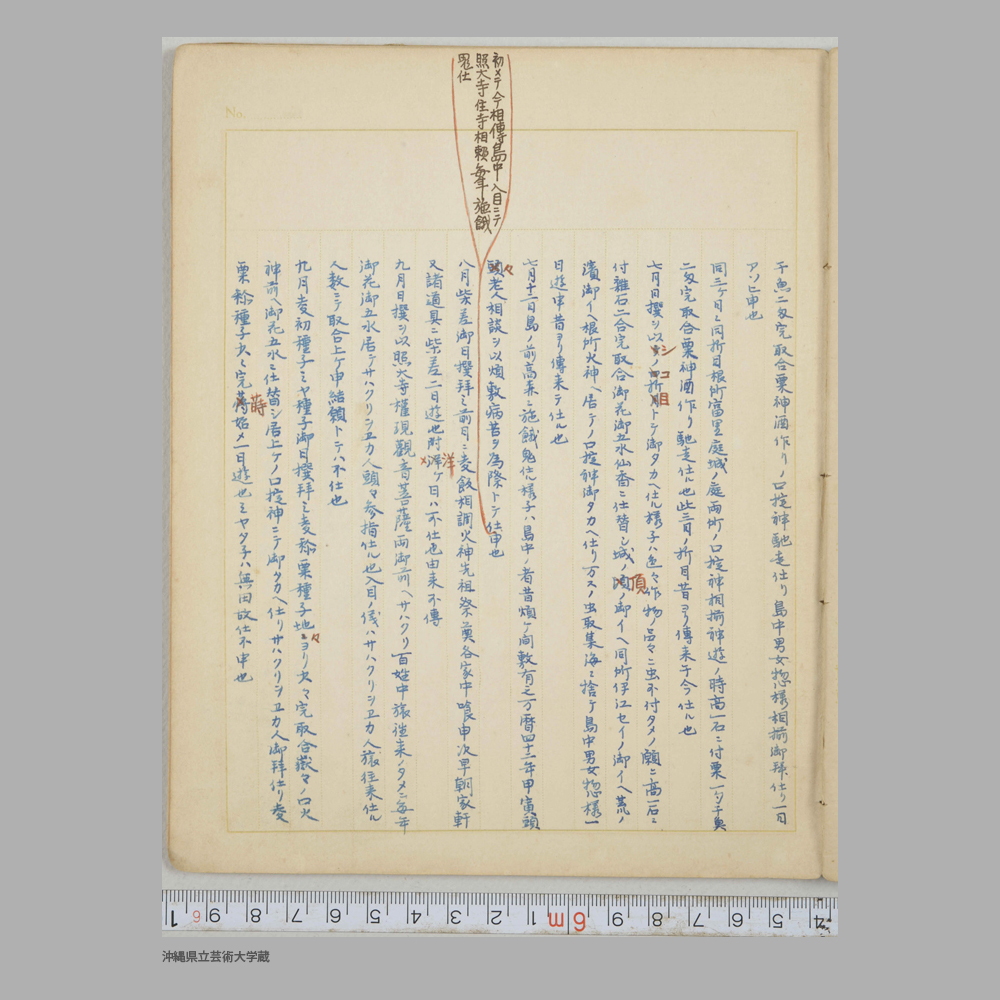 初メテ今相傳島中入目ニテ
照大寺住寺相頼每年施餓
鬼仕
No.
干魚二匁完取合粟神酒作リノロ掟神馳走仕リ島中男女惣様相揃御拜仕リ一日
アソヒ申也
同三ヶ日ニ同折目根所富里庭城ノ庭両所ノロ掟神相揃神遊ノ時高一石ニ付粟一夕干魚
二匁完取合粟神酒作リ馳走仕ル也此三日ノ折目昔ヨリ傳来于今仕ル也
七月日撰シ以シノコ折目トテ御タカヘ仕ル様子ハ色々作物ノ品々ニ虫不付タメノ願ニ高一石ニ
付雜石二合完取合御花御五水仙香ニ仕替シ城ノ頂ノ御イヘ同所伊江セイノ御イヘ荒ノ
濱御イヘ根所火神ヘ居テノロ掟神御タカヘ仕リ万スノ虫取集海ニ捨テ島中男女惣様一
日遊申昔ヨリ傳来テ仕ル也
七月十二日島ノ前高森ニ施餓鬼仕ル様子ハ島中ノ者昔煩ケ間敷有之万曆四十二年甲寅頭
頭々老人相談シ以煩敷病苦ヲ為除トテ仕申也
八月柴差御日撰拜ミ前日ニ麦飯相調火神先祖祭奠各家中喰申次早朝家軒
又諸道具ニ柴差二日遊也附洋ケ日ハ不仕也由来不傳
九月日撰シ以照大寺權現觀音菩薩両御前ヘサハクリ百姓中旅徃来ノタメニ每年
御花御五水居テサハクリシヱカ人頭々参指仕ル也入目ノ儀ハサハクリシヱカ人旅往来仕ル
人数ニテ取合上ケ申結願トテハ不仕也
九月麦初種子ミヤ種子御日撰拜ミ麦黍粟種子地々ニヨリ少々完取合嶽々ノロ火
神前ヘ御花五水ニ仕替シ居上ケノロ掟神ニテ御タカヘ仕リサハクリシヱカ人御拜仕リ麦
粟黍種子少々完蒔始メ一日遊也ミヤタチハ無田故仕不申也
1 6 9 8 7 6 5 4 3 2 1 6m 9 8 7 6 5 4
沖縄県立芸術大学蔵